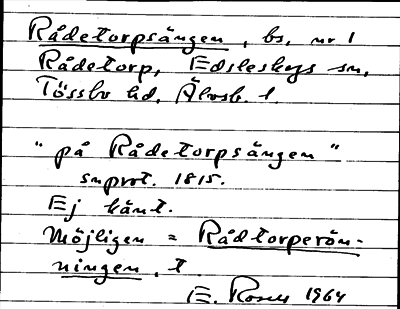 Rådetorpsängen, bs, nr 1
Rådetorp, Edsleskogs sn,
Tössbo hd, Älvsb. l.
"på Rådetorpsängen"
snprot. 1815.
Ej känt.
Möjligen = Rådtorperön-
ningen, t.
E. Rosell 1964